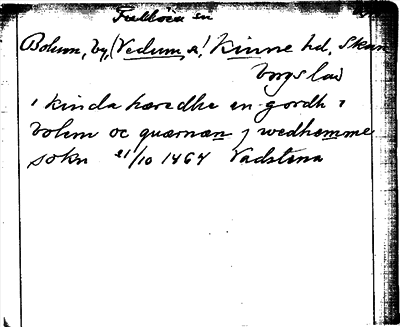 Fallösa en
Bolum, by, (Vedum s!) Kinne hd, Skara
borgs län
i kinda hæredhe en gordh i
bolem oc quærnæn j wedhemme
sokn 21/10 1464 Vadstena